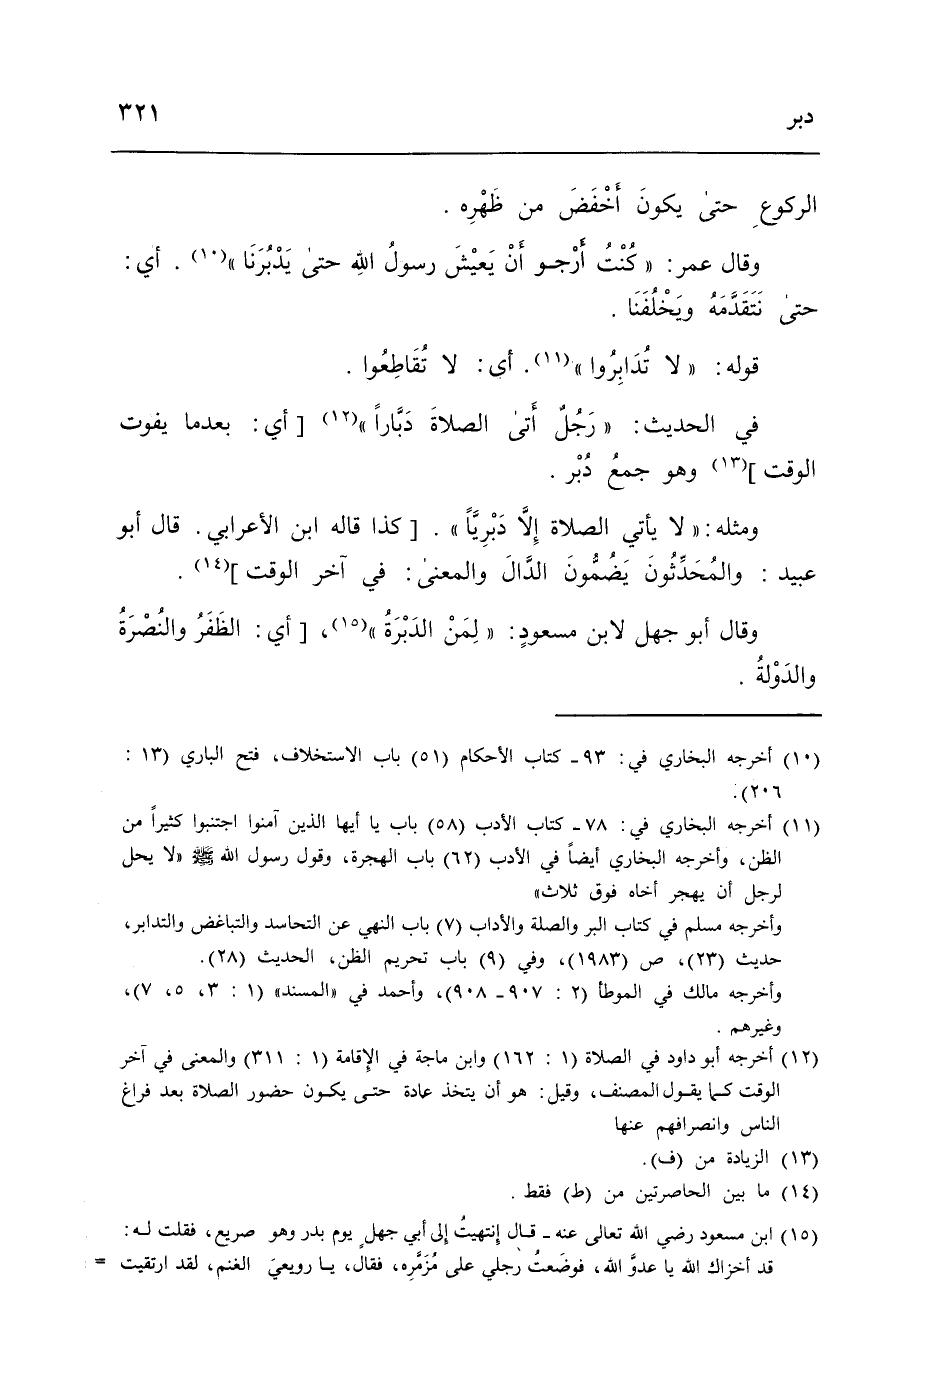 دبر ٣٢١
الركوعِ حتىٰ يكونَ أَخْفَضَ من ظَهْرِه .
وقال عمر: « كُنْتُ أَرْجو أَنْ يَعيْشَ رسولُ اللهِ حتىٰ يَدْبُرَنَا »(١٠) . أي:
حتىٰ نَتَقَدَّمَهُ ويَخْلُفَنَا .
قوله: « لا تُدَابِرُوا »(١١). أي: لا تُقَاطِعُوا .
في الحديث: « رَجُلٌ أَتىٰ الصلاةَ دَبَّاراً »(١٢) [ أي: بعدما يفوت
الوقت ](١٣) وهو جمعُ دُبْر .
ومثله: « لا يأتي الصلاة إِلَّا دَبْرِيَّاً » . [ كذا قاله ابن الأعرابي. قال أبو
عبيد : والمُحَدِّثُونَ يَضُمُّونَ الدَّالَ والمعنىٰ: في آخر الوقت ](١٤) .
وقال أبو جهل لابن مسعودٍ: « لِمَنْ الدَبْرَةُ »(١٥)، [ أي: الظَفَرُ والنُصْرَةُ
والدَوْلةُ .
(١٠) أخرجه البخاري في: ٩٣ـ كتاب الأحكام (٥١) باب الاستخلاف، فتح الباري (١٣ :
٢٠٦).
(١١) أخرجه البخاري في: ٧٨ـ كتاب الأدب (٥٨) باب يا أيها الذين آمنوا اجتنبوا كثيراً من
الظن، وأخرجه البخاري أيضاً في الأدب (٦٢) باب الهجرة، وقول رسول الله ﷺ «لا يحل
لرجل أن يهجر أخاه فوق ثلاث»
وأخرجه مسلم في كتاب البر والصلة والأداب (٧) باب النهي عن التحاسد والتباغض والتدابر،
حديث (٢٣)، ص (١٩٨٣)، وفي (٩) باب تحريم الظن، الحديث (٢٨).
وأخرجه مالك في الموطأ (٢ : ٩٠٧ـ ٩٠٨)، وأحمد في «المسند» (١ : ٣، ٥، ٧)،
وغيرهم .
(١٢) أخرجه أبو داود في الصلاة (١ : ١٦٢) وابن ماجة في الإقامة (١ : ٣١١) والمعنى في آخر
الوقت كما يقول المصنف، وقيل: هو أن يتخذ عادة حتى يكون حضور الصلاة بعد فراغ
الناس وانصرافهم عنها
(١٣) الزيادة من (ف).
(١٤) ما بين الحاصرتين من (ط) فقط .
(١٥) ابن مسعود رضي الله تعالى عنه ـ قال إنتهيتُ إلى أبي جهلٍ يوم بدر وهو صريع، فقلت له:
قد أخزاك الله يا عدوَّ الله، فوضَعتُ رجلي على مُزَمَّرِه، فقال، يا رويعيَ الغنم، لقد ارتقيت =